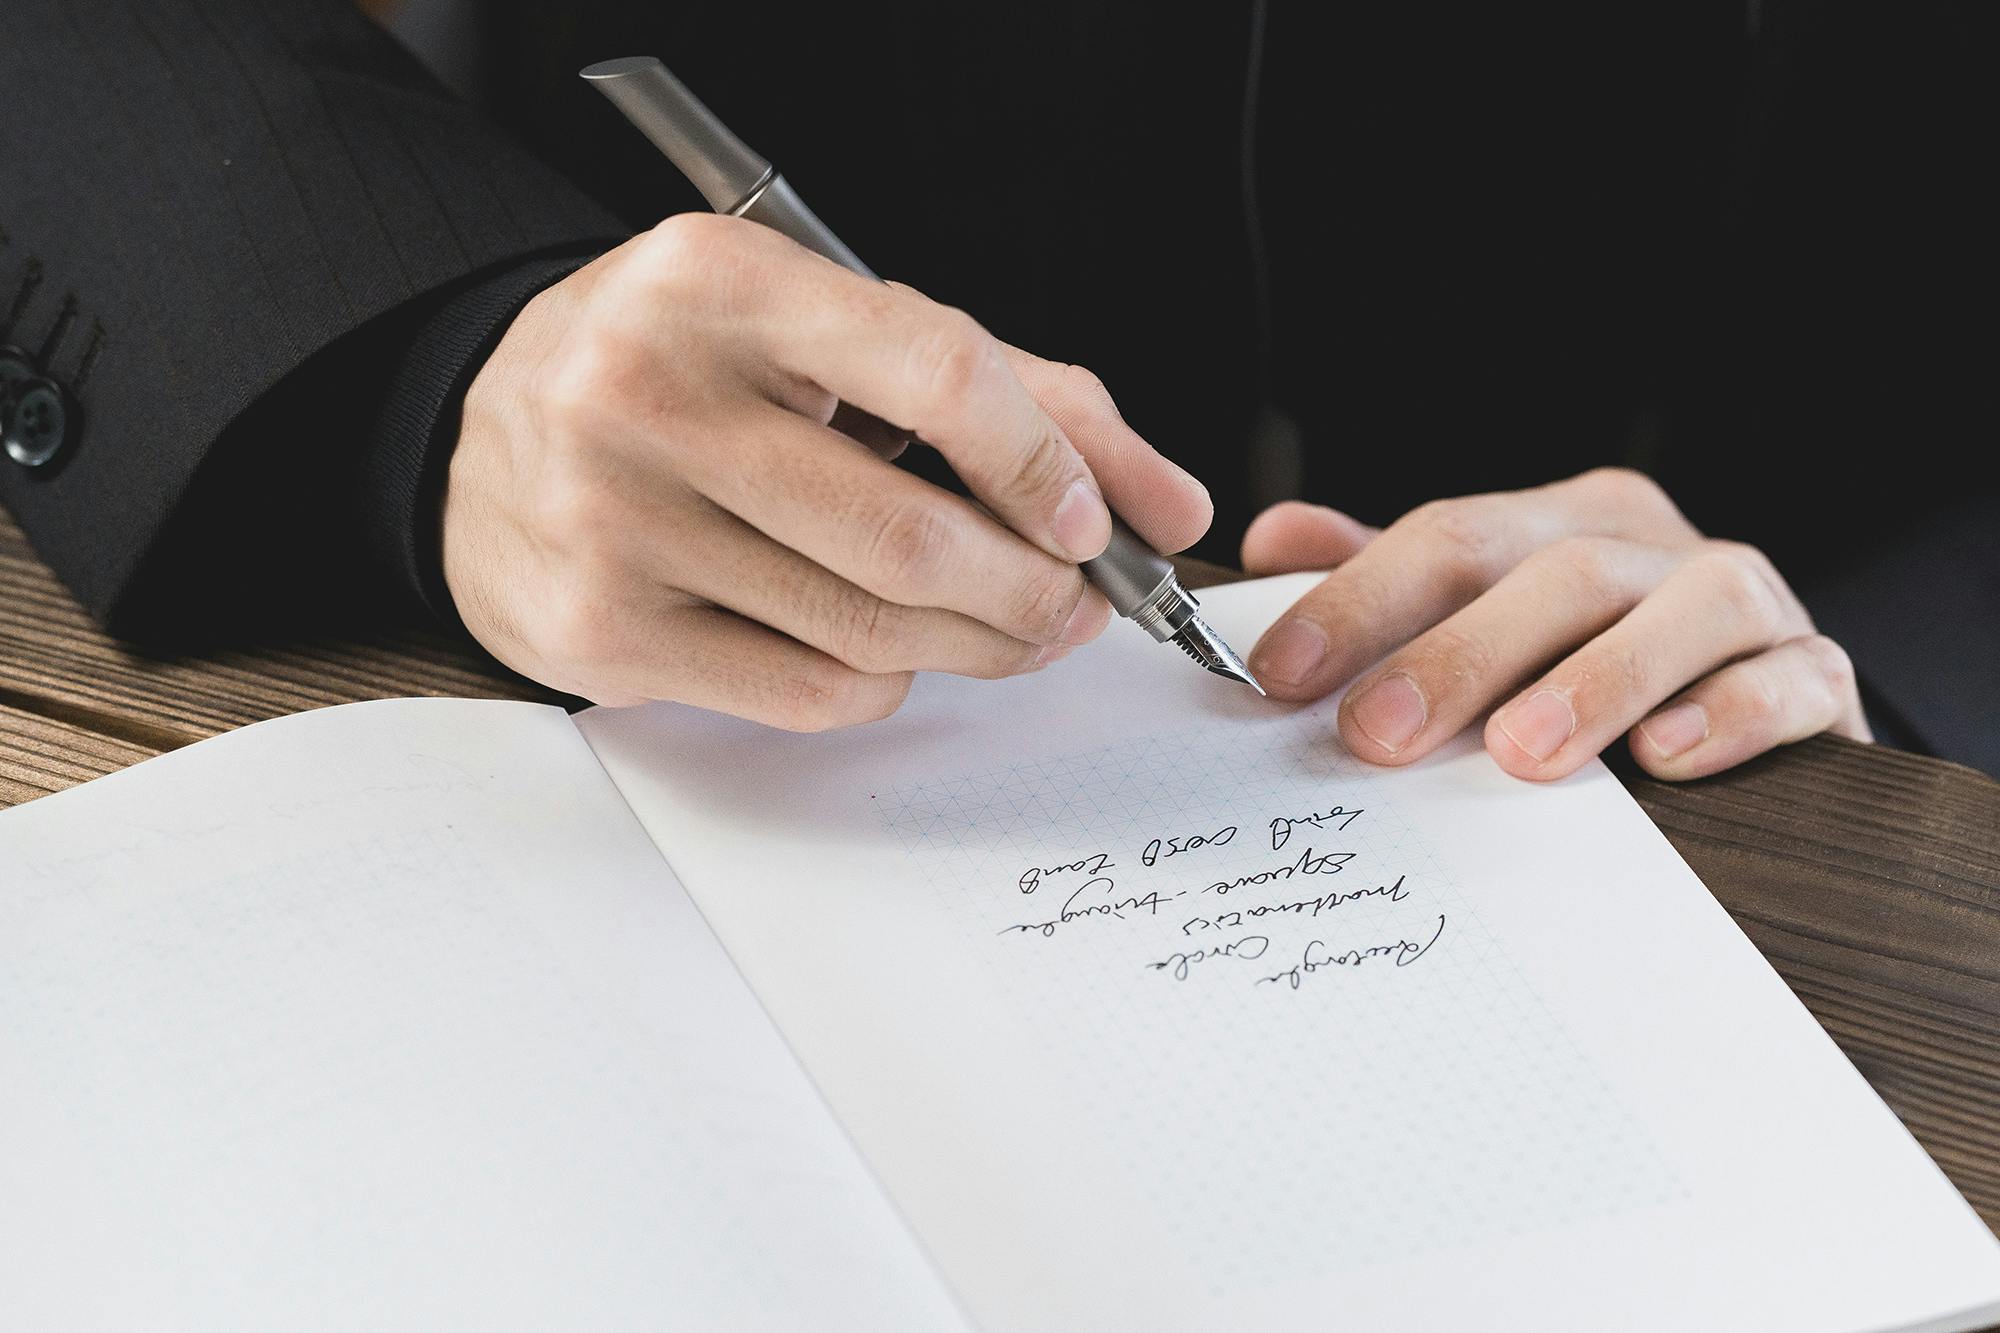 Rectangle Circle
Mathematics
Square - triangle
sinθ cosθ tanθ